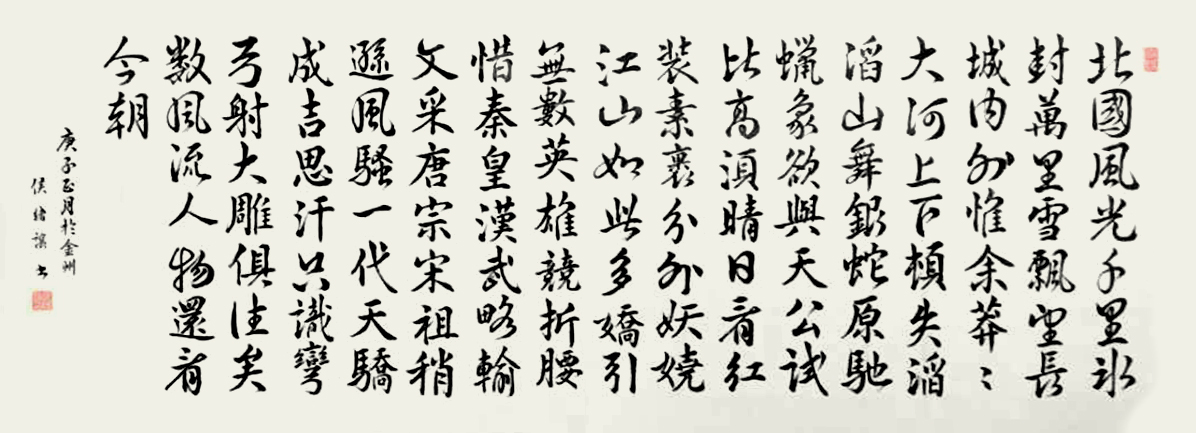 北國風光千里冰
封萬里雪飄望長
城内外惟余莽〻
大河上下頓失滔
滔山舞銀蛇原馳
蠟象欲與天公試
比高須晴日看紅
裝素裹分外妖嬈
江山如此多嬌引
無數英雄競折腰
惜秦皇漢武略輸
文采唐宗宋祖稍
遜風騷一代天驕
成吉思汗只識彎
弓射大雕俱往矣
數風流人物還看
今朝
庚子正月於金州
侯緒 書